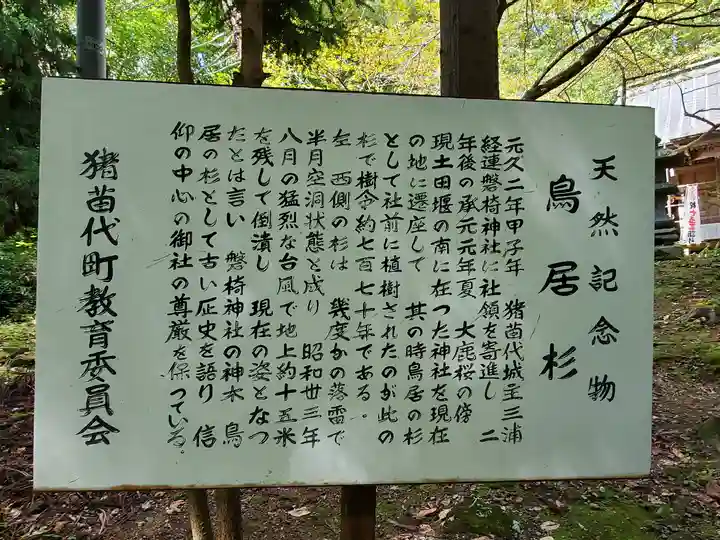 天然記念物
鳥居杉
元久二年甲子年 猪苗代城主三浦
経連磐椅神社に社領を寄進し 二
年後の承元元年夏 大鹿桜の傍
現土田堰の南に在つた神社を現在
の地に遷座して 其の時鳥居の杉
として社前に植樹されたのが此の
杉で樹令約七百七十年である。
左 西側の杉は 幾度かの落雷で
半月空洞状態と成り 昭和卅三年
八月の猛烈な台風で地上約十五米
を残して倒潰し 現在の姿となつ
たとは言い 磐椅神社の神木 鳥
居の杉として古い歴史を語り 信
仰の中心の御社の尊厳を保つている。
猪苗代町教育委員会